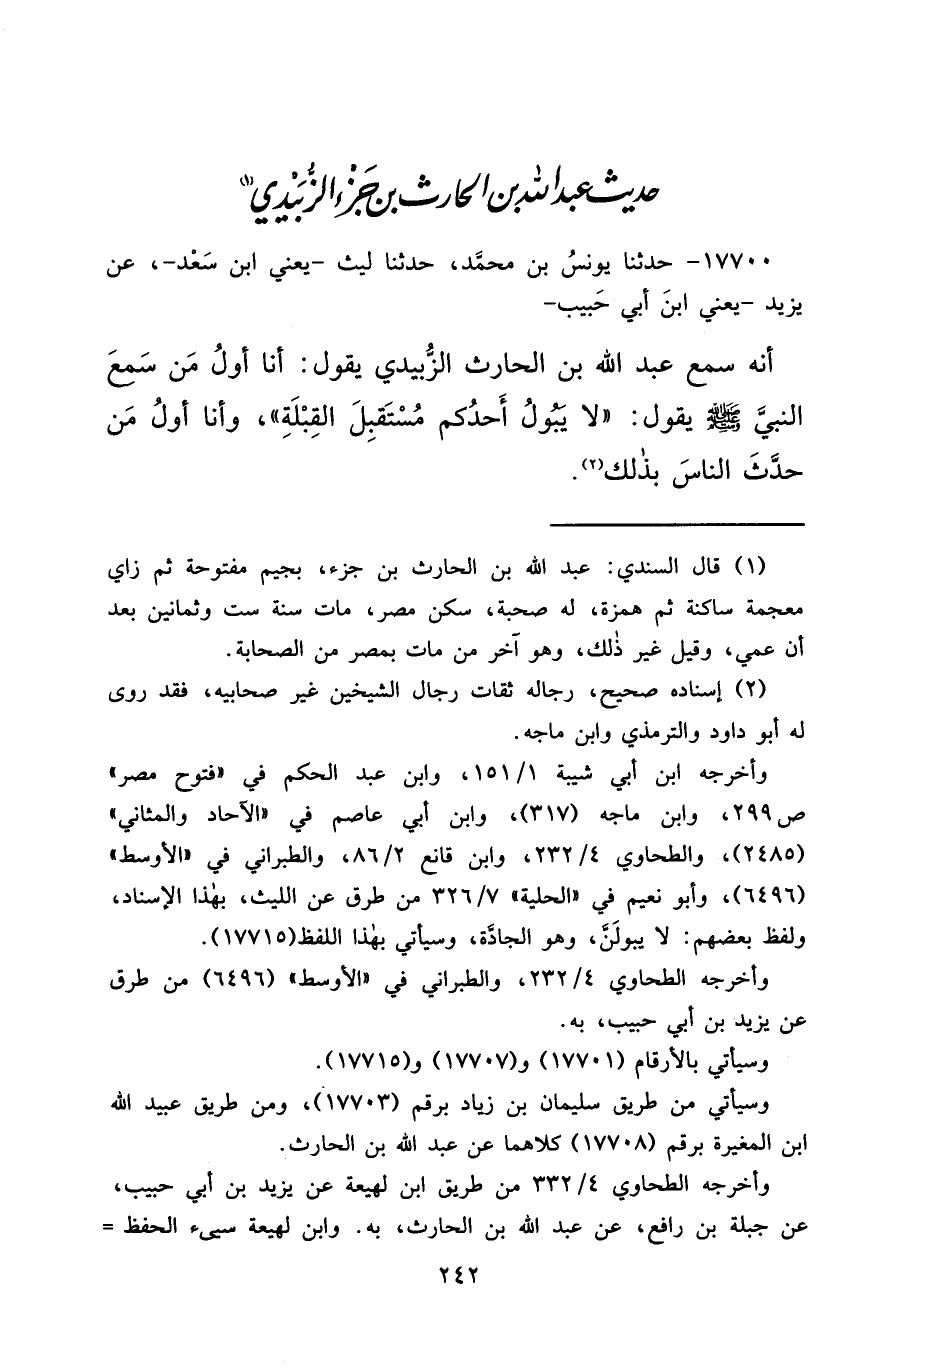 حديث عبد الله بن الحارث بن جَزْءٍ الزُّبَيْدي(١)
١٧٧٠٠- حدثنا يونسُ بن محمَّد، حدثنا ليث -يعني ابن سَعْد-، عن
يزيد -يعني ابنَ أبي حَبيب-
أنه سمع عبد الله بن الحارث الزُّبيدي يقول: أنا أولُ مَن سَمِعَ
النبيَّ ﷺ يقول: «لا يَبُولُ أَحدُكم مُسْتَقبِلَ القِبْلَةِ»، وأنا أولُ مَن
حدَّثَ الناسَ بذٰلك(٢).
(١) قال السندي: عبد الله بن الحارث بن جزء، بجيم مفتوحة ثم زاي
معجمة ساكنة ثم همزة، له صحبة، سكن مصر، مات سنة ست وثمانين بعد
أن عمي، وقيل غير ذٰلك، وهو آخر من مات بمصر من الصحابة.
(٢) إسناده صحيح، رجاله ثقات رجال الشيخين غير صحابيه، فقد روى
له أبو داود والترمذي وابن ماجه.
وأخرجه ابن أبي شيبة ١/١٥١، وابن عبد الحكم في «فتوح مصر»
ص٢٩٩، وابن ماجه (٣١٧)، وابن أبي عاصم في «الآحاد والمثاني»
(٢٤٨٥)، والطحاوي ٤/٢٣٢، وابن قانع ٢/٨٦، والطبراني في «الأوسط»
(٦٤٩٦)، وأبو نعيم في «الحلية» ٧/٣٢٦ من طرق عن الليث، بهٰذا الإسناد،
ولفظ بعضهم: لا يبولَنَّ، وهو الجادَّة، وسيأتي بهٰذا اللفظ(١٧٧١٥).
وأخرجه الطحاوي ٤/٢٣٢، والطبراني في «الأوسط» (٦٤٩٦) من طرق
عن يزيد بن أبي حبيب، به.
وسيأتي بالأرقام (١٧٧٠١) و(١٧٧٠٧) و(١٧٧١٥).
وسيأتي من طريق سليمان بن زياد برقم (١٧٧٠٣)، ومن طريق عبيد الله
ابن المغيرة برقم (١٧٧٠٨) كلاهما عن عبد الله بن الحارث.
وأخرجه الطحاوي ٤/٣٣٢ من طريق ابن لهيعة عن يزيد بن أبي حبيب،
عن جبلة بن رافع، عن عبد الله بن الحارث، به. وابن لهيعة سيىء الحفظ =
٢٤٢